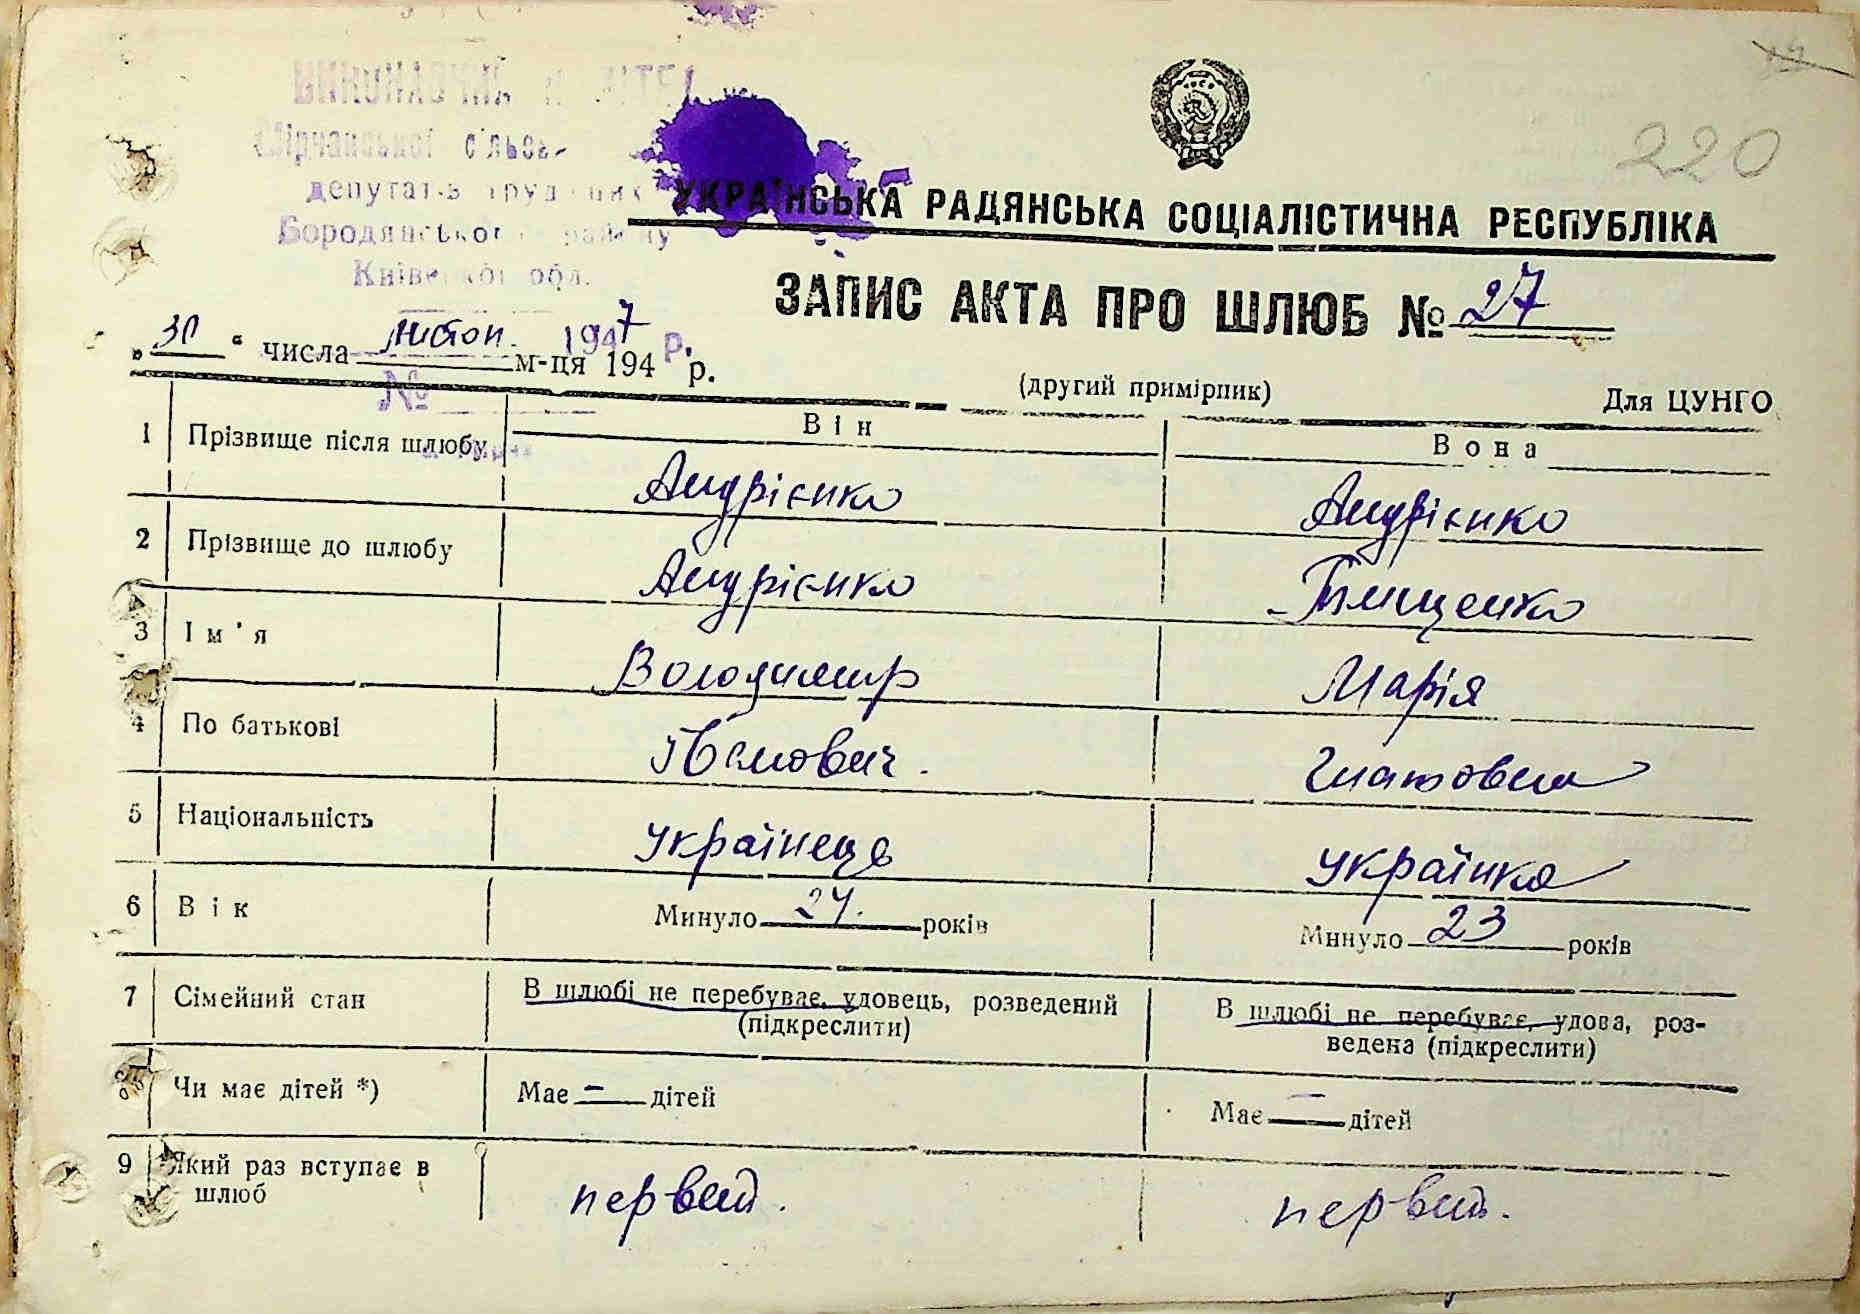 220
депутатів трудящих
Бородянського району
Київської обл.
УКРАЇНСЬКА РАДЯНСЬКА СОЦІАЛІСТИЧНА РЕСПУБЛІКА
ЗАПИС АКТА ПРО ШЛЮБ № 27
„30“ числа листоп. м-ця 194 р.
1947 р.
№
(другий примірник) Для ЦУНГО
Він Вона
1 Прізвище після шлюбу Андрієнко Андрієнко
2 Прізвище до шлюбу Андрієнко Тищенко
3 Ім'я Володимир Марія
4 По батькові
5 Національність українець українка
6 Вік Минуло 24. років Минуло 23 років
7 Сімейний стан В шлюбі не перебуває, удовець, розведений В шлюбі не перебуває, удова, роз-
(підкреслити) ведена (підкреслити)
8 Чи має дітей *) Має — дітей Має — дітей
9 Який раз вступає в
шлюб первий. первий.